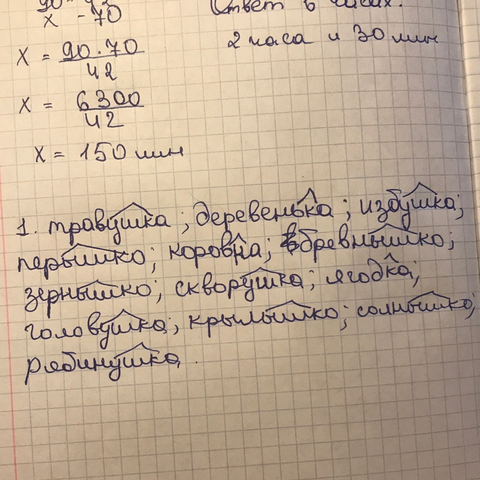 x - 70
Ответ в часах.
x = 90 · 70
42
2 часа и 30 мин
x = 6300
42
x = 150 мин
1. травушка; деревенька; избушка;
перышко; коровка; бревнышко;
зернышко; скворушка; ягодка;
головушка; крылышко; солнышко;
рябинушка.